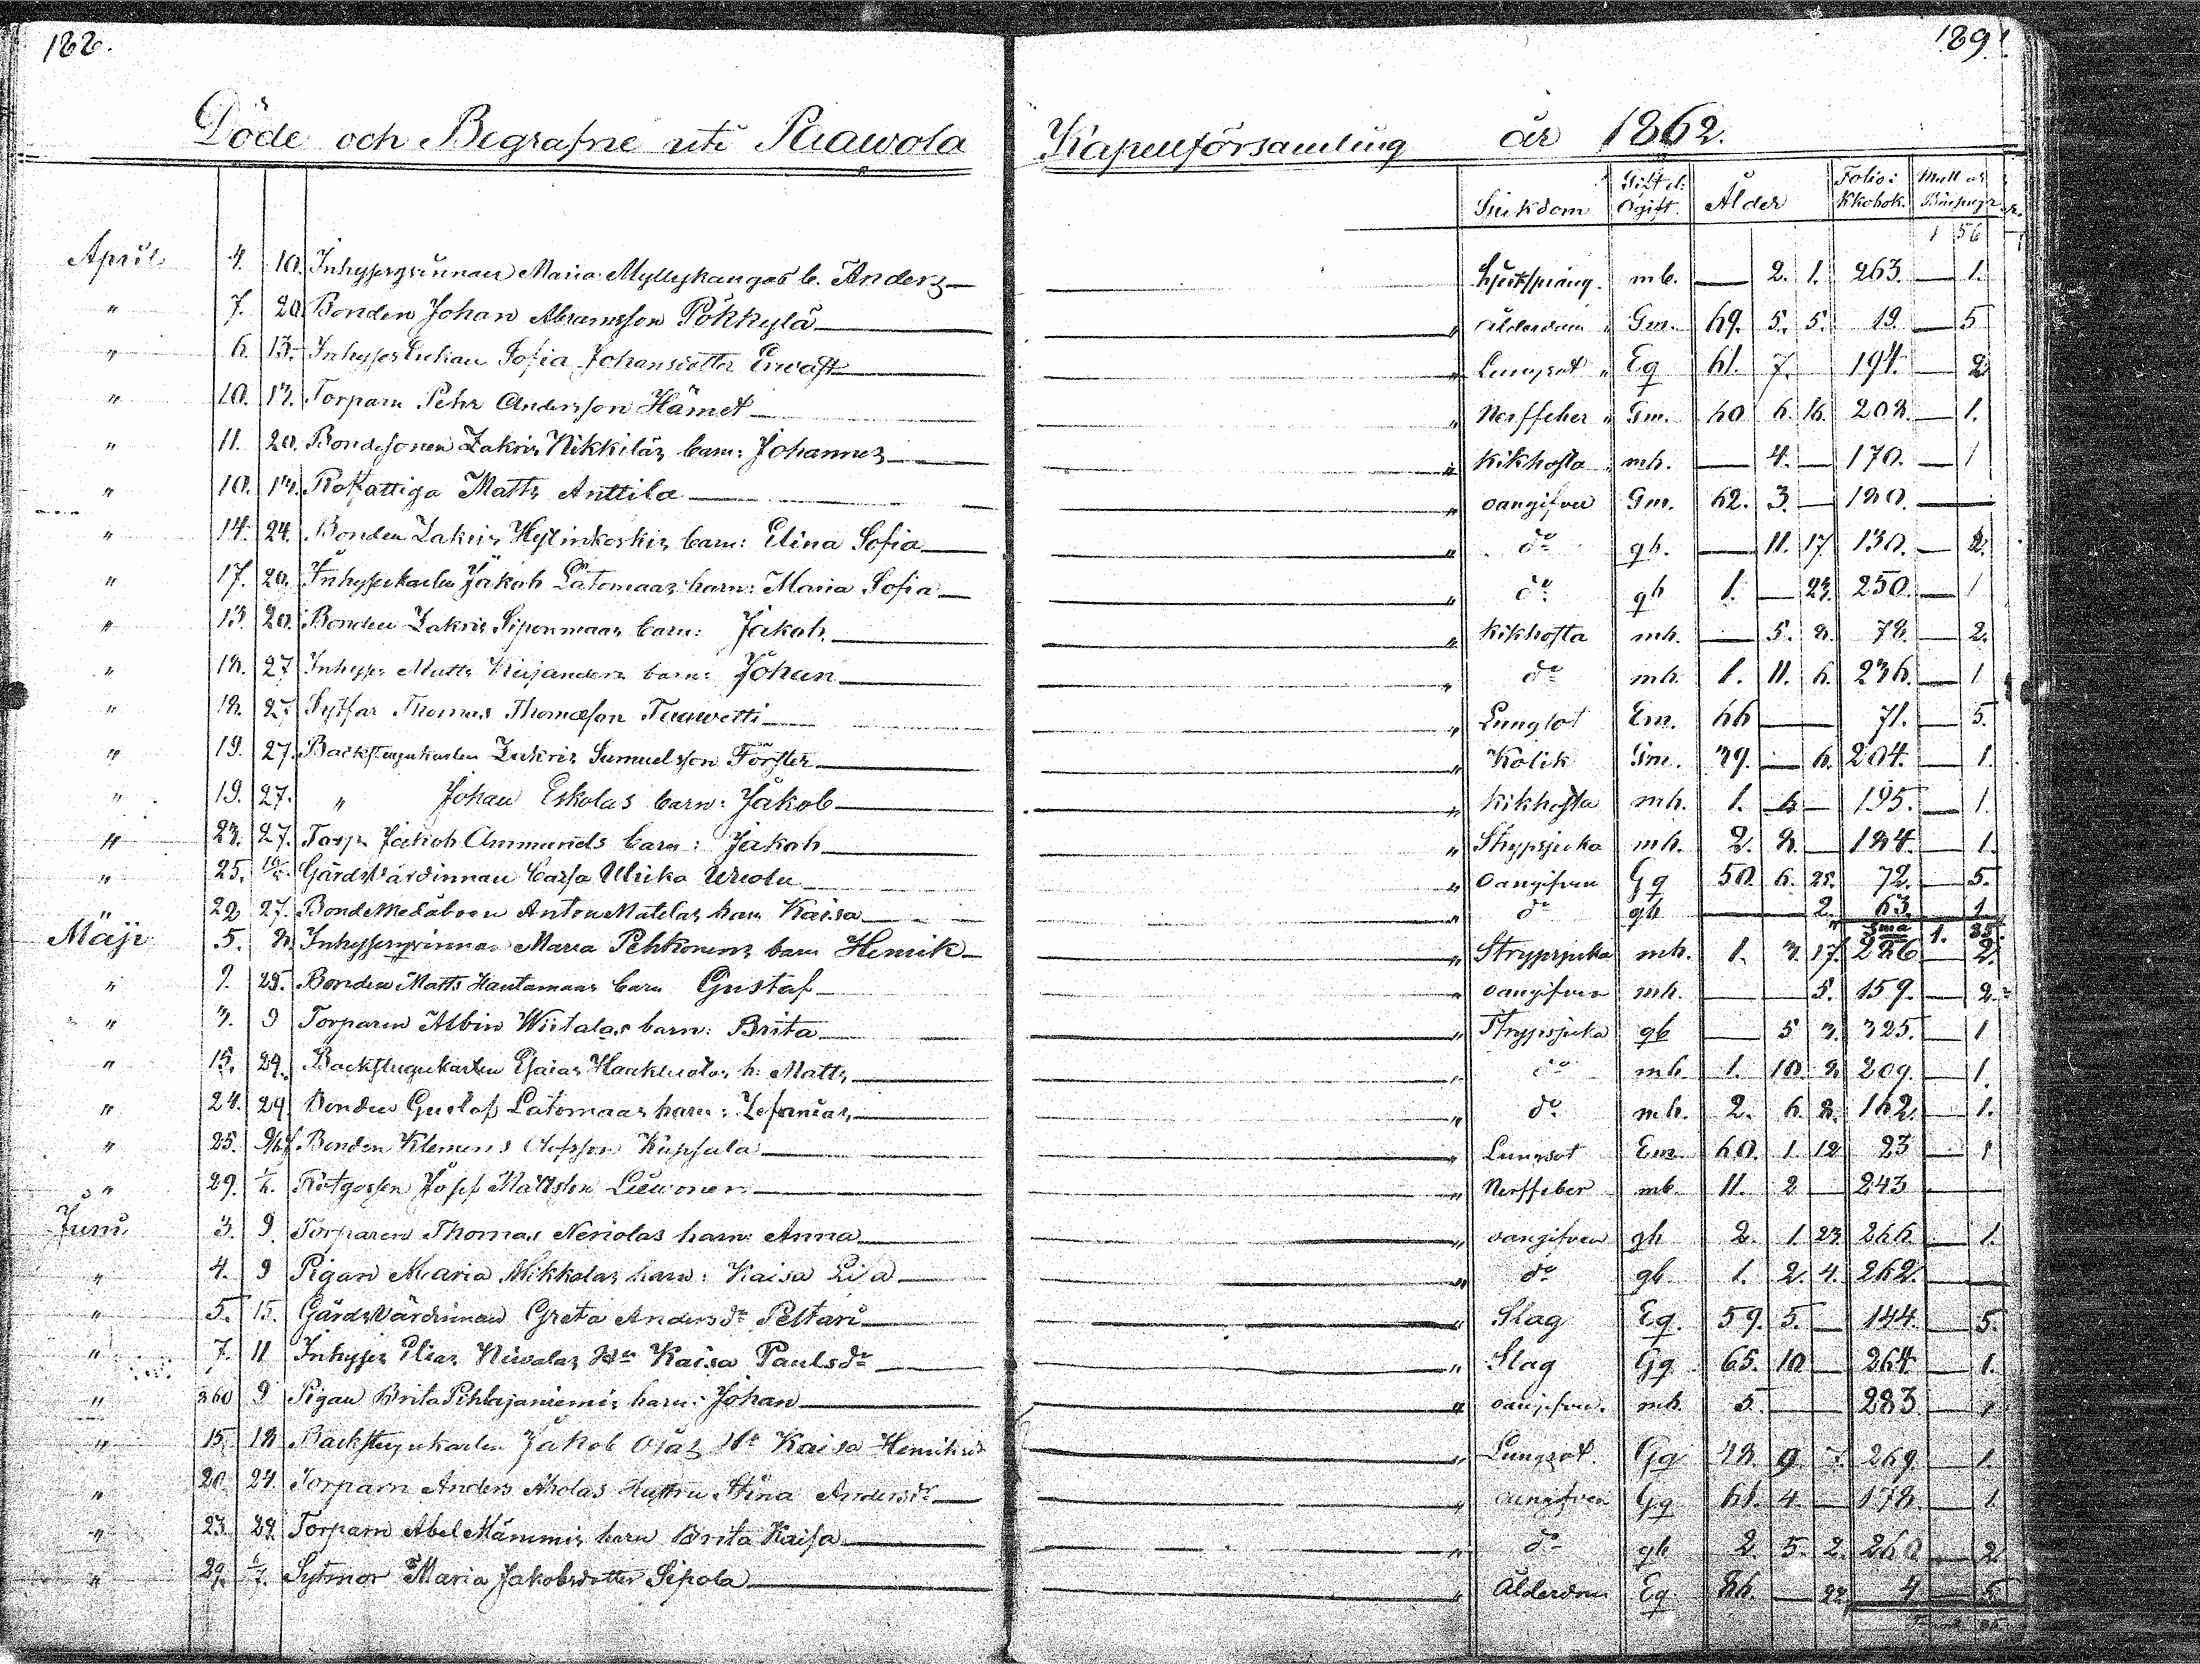 188.
189.
Döde och Begrafne uti Paawola Kapellförsamling år 1862.
Sjukdom Gift el: Ogift. Ålder Folio i Kkobok. Mull o
1 56
April 4. 10. Inhysesqvinnan Maria Mylleykangas b. Anders — Hjertsprång. mb. — 2. 1. 263. — 1.
" 7. 20 Bonden Johan Abramsson Pökkylä " Ålderdom Gm. 69. 5. 5. 19. — 5
" 6. 13. Inhyses Enkan Sofia Johansdotter Erwast " Lungsot Eq 61. 7. 194. — 2
" 10. 13. Torparn Pehr Andersson Hämet " Nerffeber Gm. 60 6. 16. 208. — 1.
" 11. 20. Bondesonen Zakris Nikkiläs barn: Johannes " Kikhosta mb. — 4. — 170. — 1
" 10. 13. Rotfattiga Matts Anttila " oangifven Gm. 62. 3. — 180. —
" 14. 24. Bonden Zakris Hylinkoskis barn: Elina Sofia " do gb. — 11. 17 130. — 2.
" 17. 20. Inhyseskarlen Jakob Latomaas barn: Maria Sofia " do gb 1. — 23. 250. — 1
" 13. 20. Bonden Zakris Siponmaas barn: Jakob " Kikhosta mb. — 5. 8. 78. — 2.
" 18. 27 Inhyses Matts Kirjanders barn: Johan " do mb. 1. 11. 6. 236. — 1
" 18. 27 Sytfar Thomas Thomasson Tauwetti " Lungsot Em. 66 — 71. — 5.
" 19. 27. Backstugukarlen Zakris Samuelsson Förster " Kolik Gm. 39. — 6. 204. — 1.
" 19. 27. " Johan Eskolas barn: Jakob " Kikhosta mb. 1. 6 — 195. — 1.
" 23. 27. Torp. Jakob Ammunds barn: Jakob " Strypsjuka mb. 2. 8. — 184. — 1.
" 25. Gårdsvärdinnan Caisa Ulrika Uusola " oangifven Gq 50. 6. 25. 72. — 5.
" 22 27. Bondemedåboen Anton Matelas barn Kaisa " do gb — 2. 63. 1
Sma 1. 85.
Maji 5. 8 Inhysesqvinnan Maria Pehkonens barn Henrik " Strypsjuka mb. 1. 3. 17. 286 — 2.
" 9. 25. Bonden Matts Hautamaas barn Gustaf " oangifven mb. — 5. 159. — 2.
" 3. 9 Torparen Albin Wiitalas barn: Brita " Strypsjuka gb — 5 3. 325. — 1
" 15. 29. Backstugukarlen Esaias Haakuolas b: Matts " do mb. 1. 10. 8 209. — 1.
" 24. 29 Bonden Gustaf Latomaas barn: Zefanias " do mb. 2. 6 8. 162. — 1.
" 25. Bonden Klemens Olofsson Kupsala " Lungsot Em. 60. 1. 12 23 — 1
" 29. Rotgossen Josef Mattsson Liewonen " Nerffeber mb. 11. 2 — 243 —
Juni 3. 9. Torparen Thomas Neriolas barn Anna " oangifven gb 2. 1. 23 266. — 1.
" 4. 9 Pigan Maria Mikkolas barn: Kaisa Lisa " do gb. 1. 2. 4. 262. —
" 5. 15. Gårdsvärdinnan Greta Andersdr Peltari " Slag Eq. 59. 5. — 144. — 5.
" 7. 11 Inhyses Elias Niwalas Hu Kaisa Paulsdr " Slag Gq 65. 10 — 264. — 1.
" 9 Pigan Brita Pihlajaniemis barn: Johan " oangifven. mb. 5. — 283 1
" 15 18 Backstugukarlen Jakob Ojas Hu Kaisa Henriksdr " Lungsot. Gq 48. 9. 7. 269. — 1.
" 20. 24. Torparn Anders Aholas Hustru Stina Andersdr " oangifven Gq 61. 4. — 178. — 1.
" 23. 29. Torparn Abel Mämmis barn Brita Kaisa " do gb 2. 5. 2. 260 — 2
" 29. Sytmor Maria Jakobsdotter Sipola " Ålderdom Eq. 86. — 22. 4 — 5